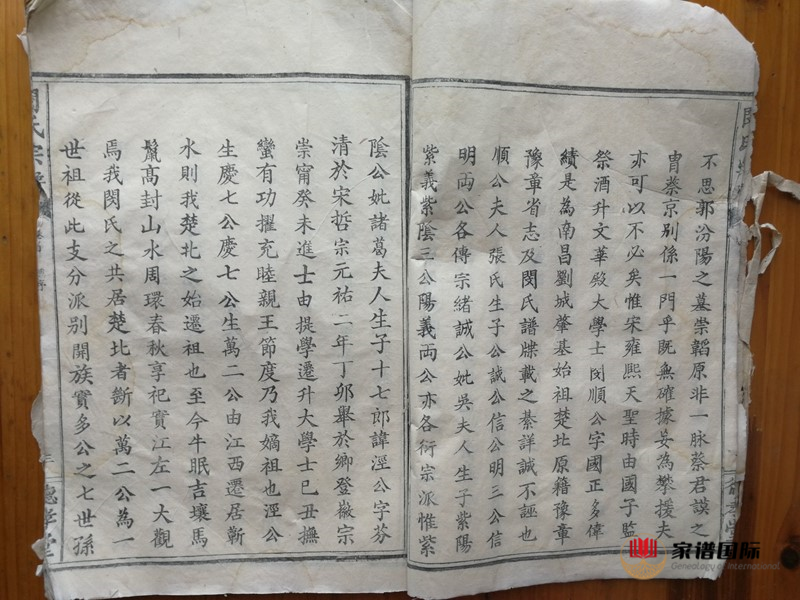 不思郭汾陽之墓崇韜原非一脉蔡君謨之
胄蔡京別係一門乎既無確據妄為攀援夫
亦可以不必矣惟宋雍熙天聖時由國子監
祭酒升文華殿大學士閔順公字國正多偉
績是為南昌劉城肇基始祖楚北原籍豫章
豫章省志及閔氏譜牒載之綦詳誠不誣也
順公夫人張氏生子公誠公信公明三公信
明両公各傳宗緒誠公妣吳夫人生子紫陽
紫義紫陰三公陽義両公亦各衍宗派惟紫
陰公妣諸葛夫人生子十七郎諱涇公字芬
清於宋哲宗元祐二年丁卯舉於鄉登徽宗
崇甯癸未進士由提學遷升大學士己丑撫
蠻有功擢充睦親王節度乃我嫡祖也涇公
生慶七公慶七公生萬二公由江西遷居蘄
水則我楚北之始遷祖也至今牛眠吉壤馬
鬣高封山水周環春秋享祀實江左一大觀
焉我閔氏之共居楚北者斷以萬二公為一
世祖從此支分派別開族實多公之七世孫
氏宗譜
家谱国际
Genealogy of International